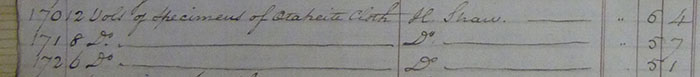 170 12 Vols of Specimens of Otaheite Cloth H. Shaw. " 6 4
171 8 Do. Do. " 5 7
172 6 Do. Do " 5 1